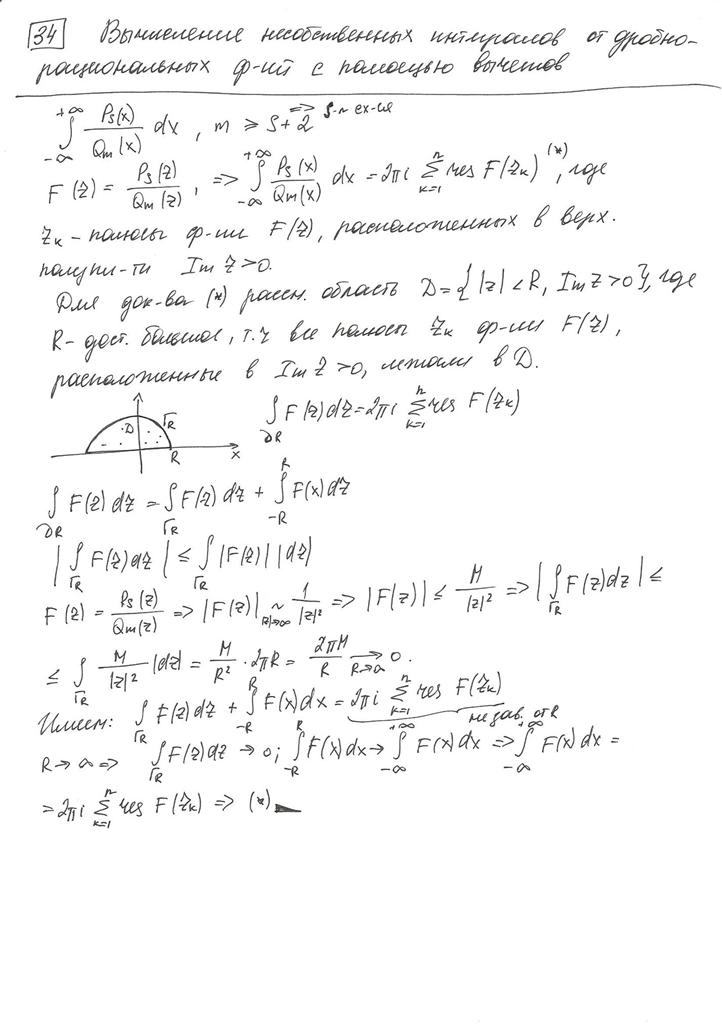 34 Вычисление несобственных интегралов от дробно-
рациональных ф-ий с помощью вычетов
∫_{-∞}^{+∞} P_s(x)/Q_m(x) dx, m ≥ s+2 => s-л сх-ся
F(z) = P_s(z)/Q_m(z), => ∫_{-∞}^{+∞} P_s(x)/Q_m(x) dx = 2πi ∑_{k=1}^{n} res F(z_k) (*), где
z_k - полюсы ф-ии F(z), расположенных в верх.
полупл-ти Im z>0.
Для док-ва (*) рассм. область D={|z|<R, Im z>0}, где
R - дост. большое, т.ч все полюсы z_k ф-ии F(z),
расположенные в Im z>0, лежали в D.
D Γ_R R x
∫_{∂R} F(z)dz = 2πi ∑_{k=1}^{n} res F(z_k)
∫_{∂R} F(z)dz = ∫_{Γ_R} F(z)dz + ∫_{-R}^{R} F(x)dz
|∫_{Γ_R} F(z)dz| ≤ ∫_{Γ_R} |F(z)||dz|
F(z) = P_s(z)/Q_m(z) => |F(z)| ~_{|z|→∞} 1/|z|² => |F(z)| ≤ M/|z|² => |∫_{Γ_R} F(z)dz| ≤
≤ ∫_{Γ_R} M/|z|² |dz| = M/R² · 2πR = 2πM/R →_{R→∞} 0.
Имеем: ∫_{Γ_R} F(z)dz + ∫_{-R}^{R} F(x)dx = 2πi ∑_{k=1}^{n} res F(z_k)
не зав. от R
R→∞ => ∫_{Γ_R} F(z)dz → 0; ∫_{-R}^{R} F(x)dx → ∫_{-∞}^{+∞} F(x)dx => ∫_{-∞}^{+∞} F(x)dx =
= 2πi ∑_{k=1}^{n} res F(z_k) => (*)